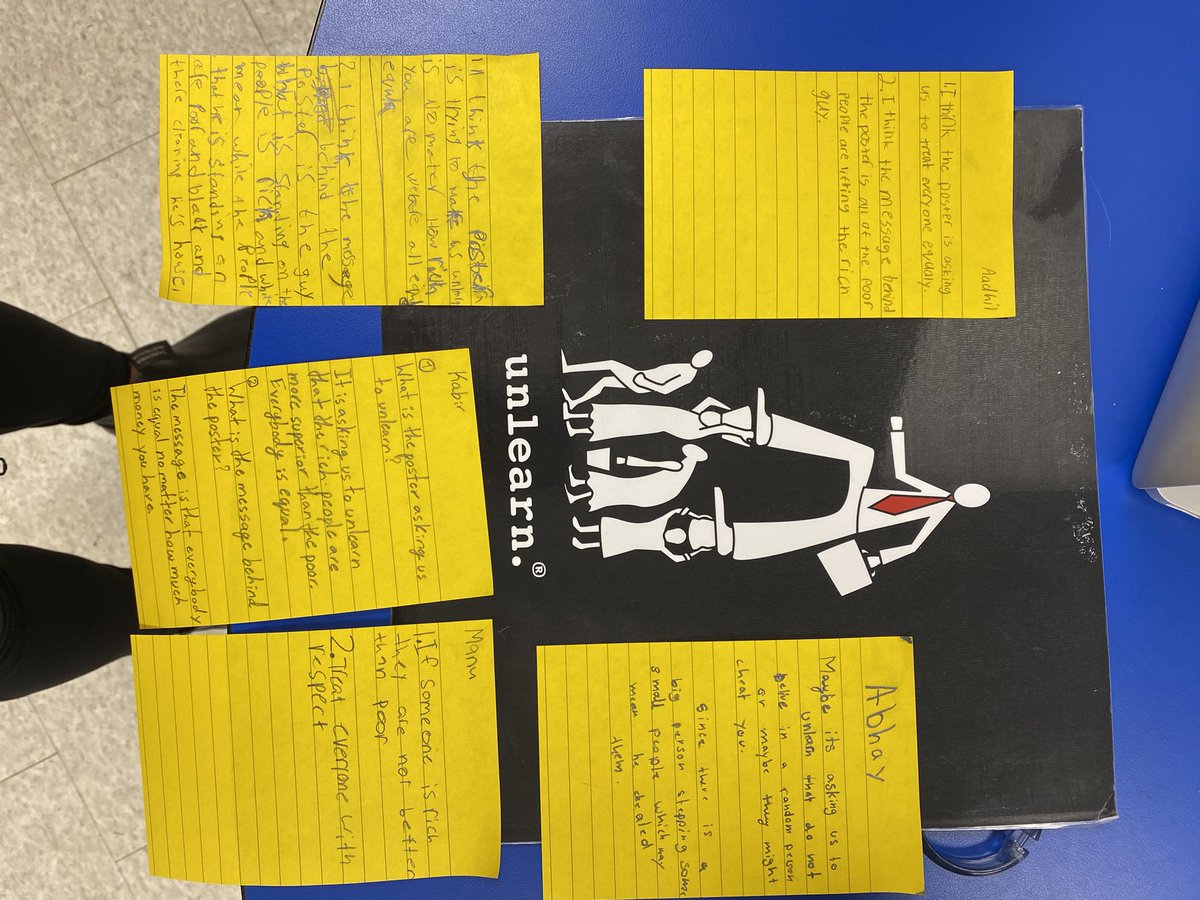 Aadhil
1.I think the poster is asking
us to treat everyone equaly.
2.I think the message behind
the poster is all of the poor
people are lifting the rich
guy.
Abhay
Maybe its asking us to
unlearn that do not
belive in a random person
or maybe they might
cheat you.
Since there is a
big person stepping some
small people which may
mean he cheated
them.
unlearn.®
I think the poster
is trying to make us unlern
is no mater how rich
you are all
equle
2. I think the message
behind the
poster is the guy
is standing on the
people is rich and white
mean while the people
that he is standing on
are poor and black and
there cleaning he's house,
Kabir
① What is the poster asking us
to unlearn?
It is asking us to unlearn
that the rich people are
more superior than the poor.
Everybody is equal.
② What is the message behind
the poster?
The message is that everybody
is equal no matter how much
money you have.
Manu
1.If someone is rich
they are not better
than poor
2.Treat everyone with
respect